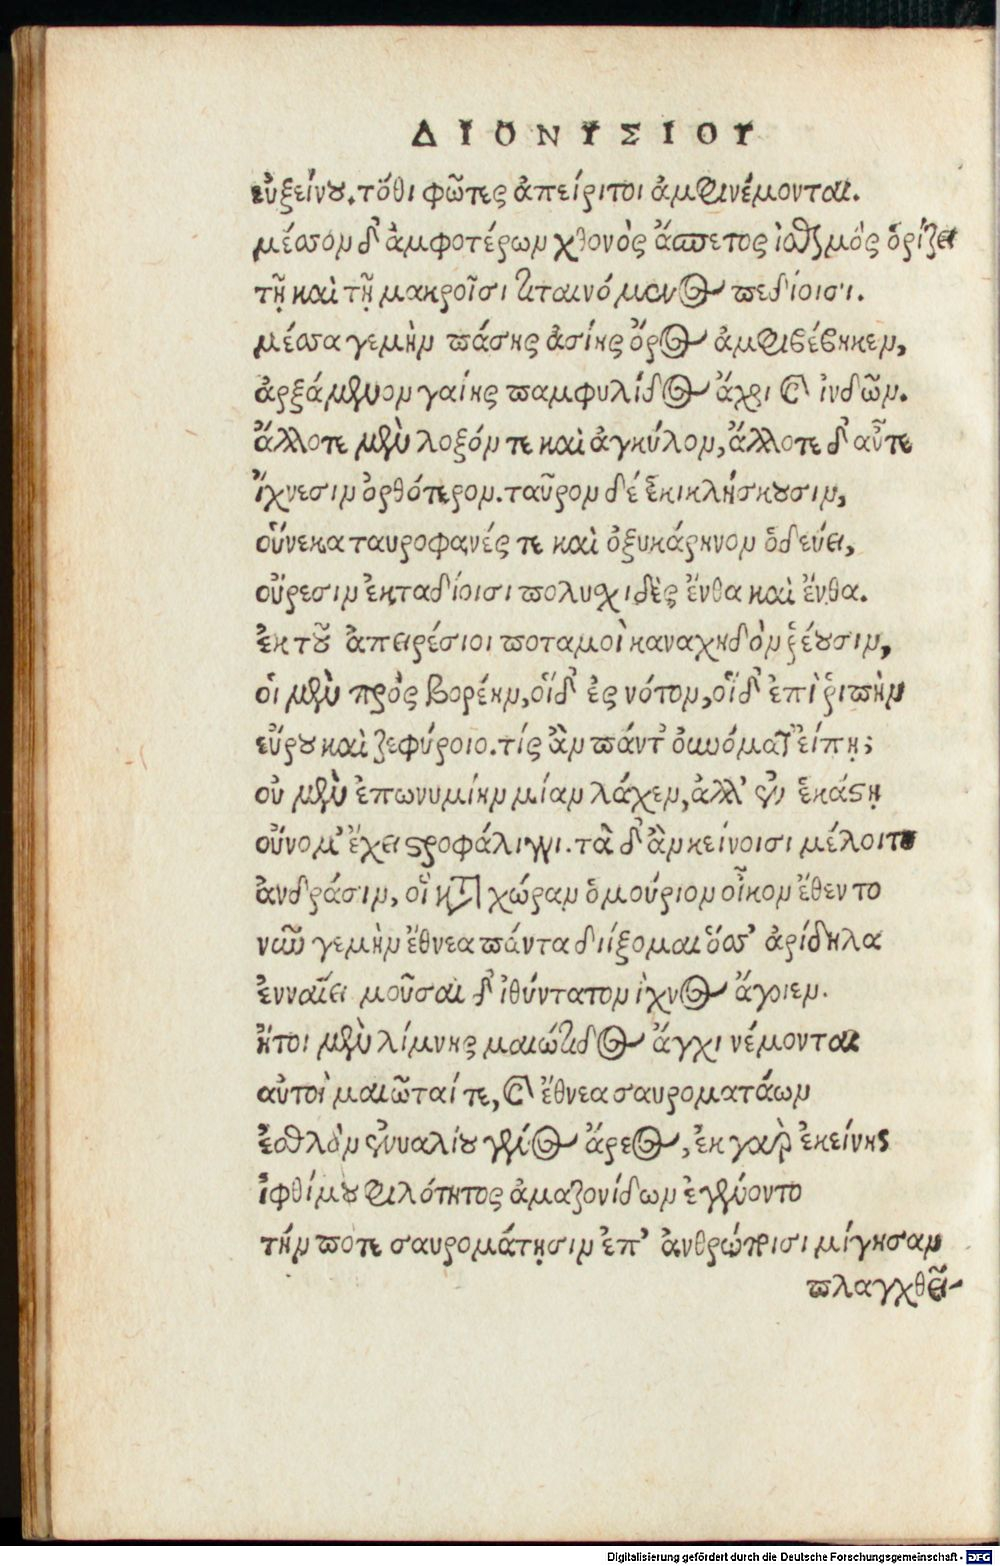 ΔΙΟΝΥΣΙΟΥ
εὐξείνου. τόθι φῶτες ἀπείριτοι ἀμφινέμονται.
μέσσον δ' ἀμφοτέρων χθονὸς ἄσπετος ἰσθμὸς ὁρίζει
τῇ καὶ τῇ μακροῖσι τιταινόμενος πεδίοισι.
μέσσα γεμὴν πάσης ἀσίης ὄρος ἀμφιβέβηκεν,
ἀρξάμενον γαίης παμφυλίδος ἄχρι καὶ ἰνδῶν.
ἄλλοτε μὲν λοξόν τε καὶ ἀγκύλον, ἄλλοτε δ' αὖτε
ἴχνεσιν ὀρθότερον. ταῦρον δέ ἑ κικλήσκουσιν,
οὕνεκα ταυροφανές τε καὶ ὀξυκάρηνον ὁδεύει,
οὔρεσιν ἐκταδίοισι πολυσχιδὲς ἔνθα καὶ ἔνθα.
ἐκ τοῦ ἀπειρέσιοι ποταμοὶ καναχηδὸν ῥέουσιν,
οἱ μὲν πρὸς βορέην, οἵδ' ἐς νότον, οἵδ' ἐπὶ ῥιπὴν
εὔρου καὶ ζεφύροιο. τίς ἂν πάντ' ὀνόματ' εἴπῃ;
οὐ μὲν ἐπωνυμίην μίαν λάχεν, ἀλλ' ἐν ἑκάστῃ
οὔνομ' ἔχει στροφάλιγγι. τὰ δ' ἂν κείνοισι μέλοιτο
ἀνδράσιν, οἳ κατὰ χώραν ὁμούριον οἶκον ἔθεντο
νῦν γεμὴν ἔθνεα πάντα διίξομαι ὅσσ' ἀρίδηλα
ἐνναίει μοῦσαι δ' ἰθύντατον ἴχνος ἄγοιεν.
ἤτοι μὲν λίμνης μαιώτιδος ἄγχι νέμονται
αὐτοὶ μαιῶταί τε, καὶ ἔθνεα σαυροματάων
ἐσθλὸν ἐνυαλίου γένος ἄρεος, ἐκ γὰρ ἐκείνης
ἰφθίμου φιλότητος ἀμαζονίδων ἐγένοντο
τήν ποτε σαυρομάτῃσιν ἐπ' ἀνθρώποισι μίγησαν
πλαγχθεῖ-
Digitalisierung gefördert durch die Deutsche Forschungsgemeinschaft - DFG